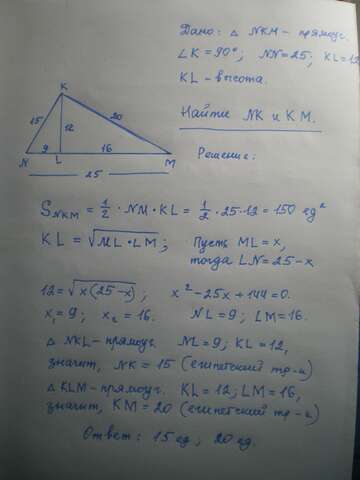 Дано: △ NKM – прямоуг.
∠K = 90°; NN = 25; KL = 12
KL – высота.
Найти NK и KM.
Решение:
K
15 12 20
9 16
N L M
25
S NKM = 1/2 · NM · KL = 1/2 · 25 · 12 = 150 ед²
KL = √ML · LM ; Пусть ML = x,
тогда LN = 25 – x
12 = √x(25 – x) ; x² – 25x + 144 = 0.
x₁ = 9 ; x₂ = 16. NL = 9 ; LM = 16.
△ NKL – прямоуг. NL = 9 ; KL = 12,
значит, NK = 15 (египетский тр-к)
△ KLM – прямоуг. KL = 12 ; LM = 16,
значит, KM = 20 (египетский тр-к)
Ответ: 15 ед ; 20 ед.